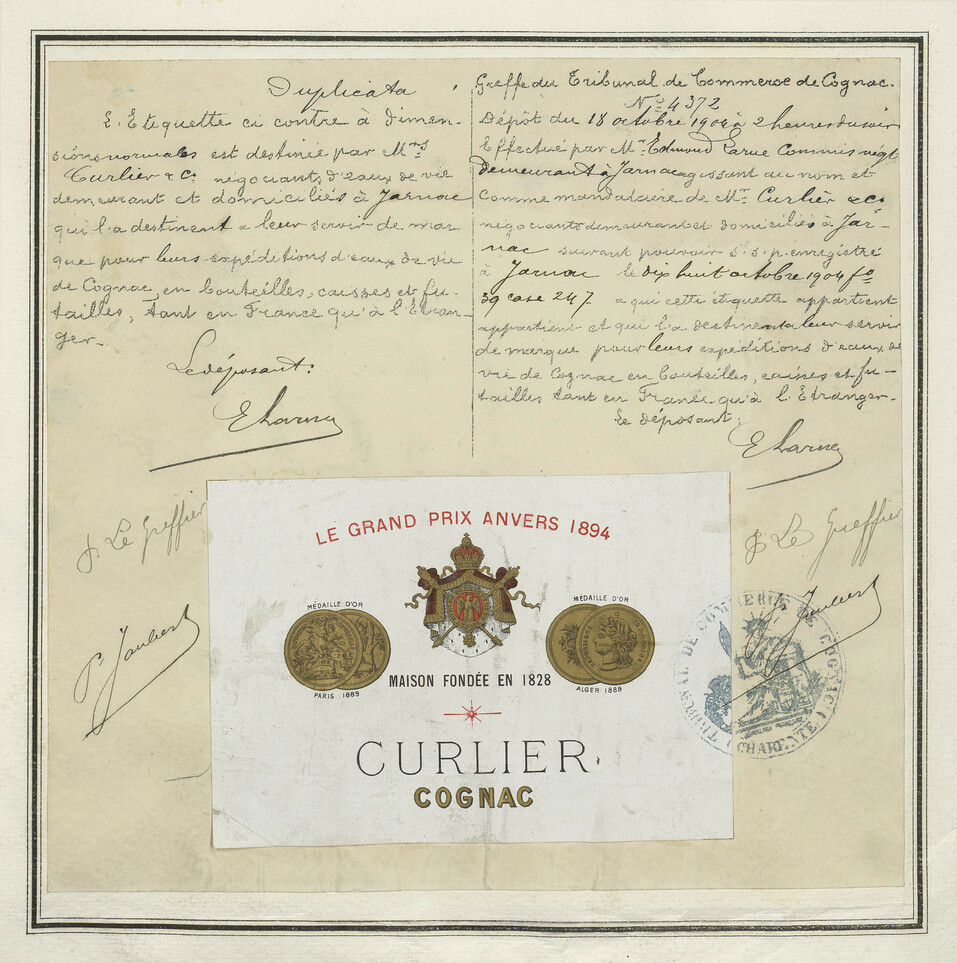 Duplicata
L'Etiquette ci contre à dimen-
sions normales est destinée par Mrs
Curlier & Co négociants d'eaux de vie
demeurant et domiciliés à Jarnac
qui l'a destinent a leur servir de mar
que pour leurs expéditions d'eaux de vie
de Cognac, en bouteilles, caisses et fu-
tailles, tant en France qu'à l'Etran-
ger.-
Le déposant:
ELarue
Greffe du Tribunal de Commerce de Cognac.
No 4372
Dépôt du 18 octobre 1904 à 2 heures du soir
Effectué par Mr Edmond Larue Commis negt
demeurant à Jarnac agissant au nom et
comme mandataire de Mrs Curlier & Co
négociants demeurant et domiciliés à Jar-
nac suivant pouvoir s.s.p. enregistré
à Jarnac le dix huit octobre 1904 fo
39 case 247 a qui cette étiquette appartient
appartient et qui l'a destinent a leur servir
de marque pour leurs expéditions d'eaux de
vie de Cognac en bouteilles, caisses et fu-
tailles tant en France qu'à l'Etranger-
Le déposant;
ELarue
Le Greffier
Le Greffier
LE GRAND PRIX ANVERS 1894
MÉDAILLE D'OR
PARIS 1889
MÉDAILLE D'OR
ALGER 1889
MAISON FONDÉE EN 1828
CURLIER
COGNAC
Jaubert
Jaubert
TRIBUNAL DE COMMERCE DE COGNAC
(CHARENTE)